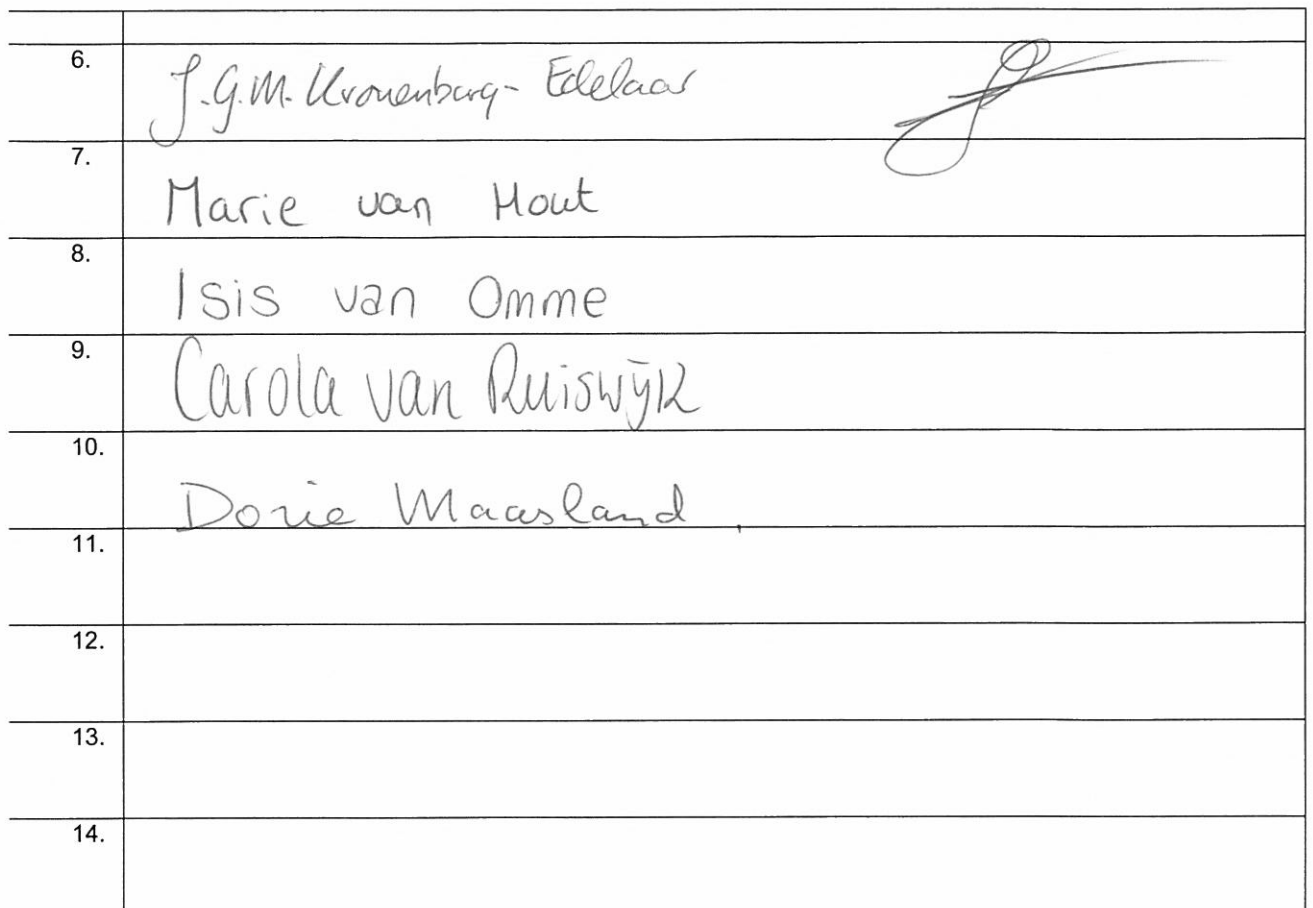 6. J.G.M. Kronenburg-Edelaar
7. Marie van Hout
8. Isis van Omme
9. Carola van Ruiswijk
10. Dorie Maasland.
11.
12.
13.
14.